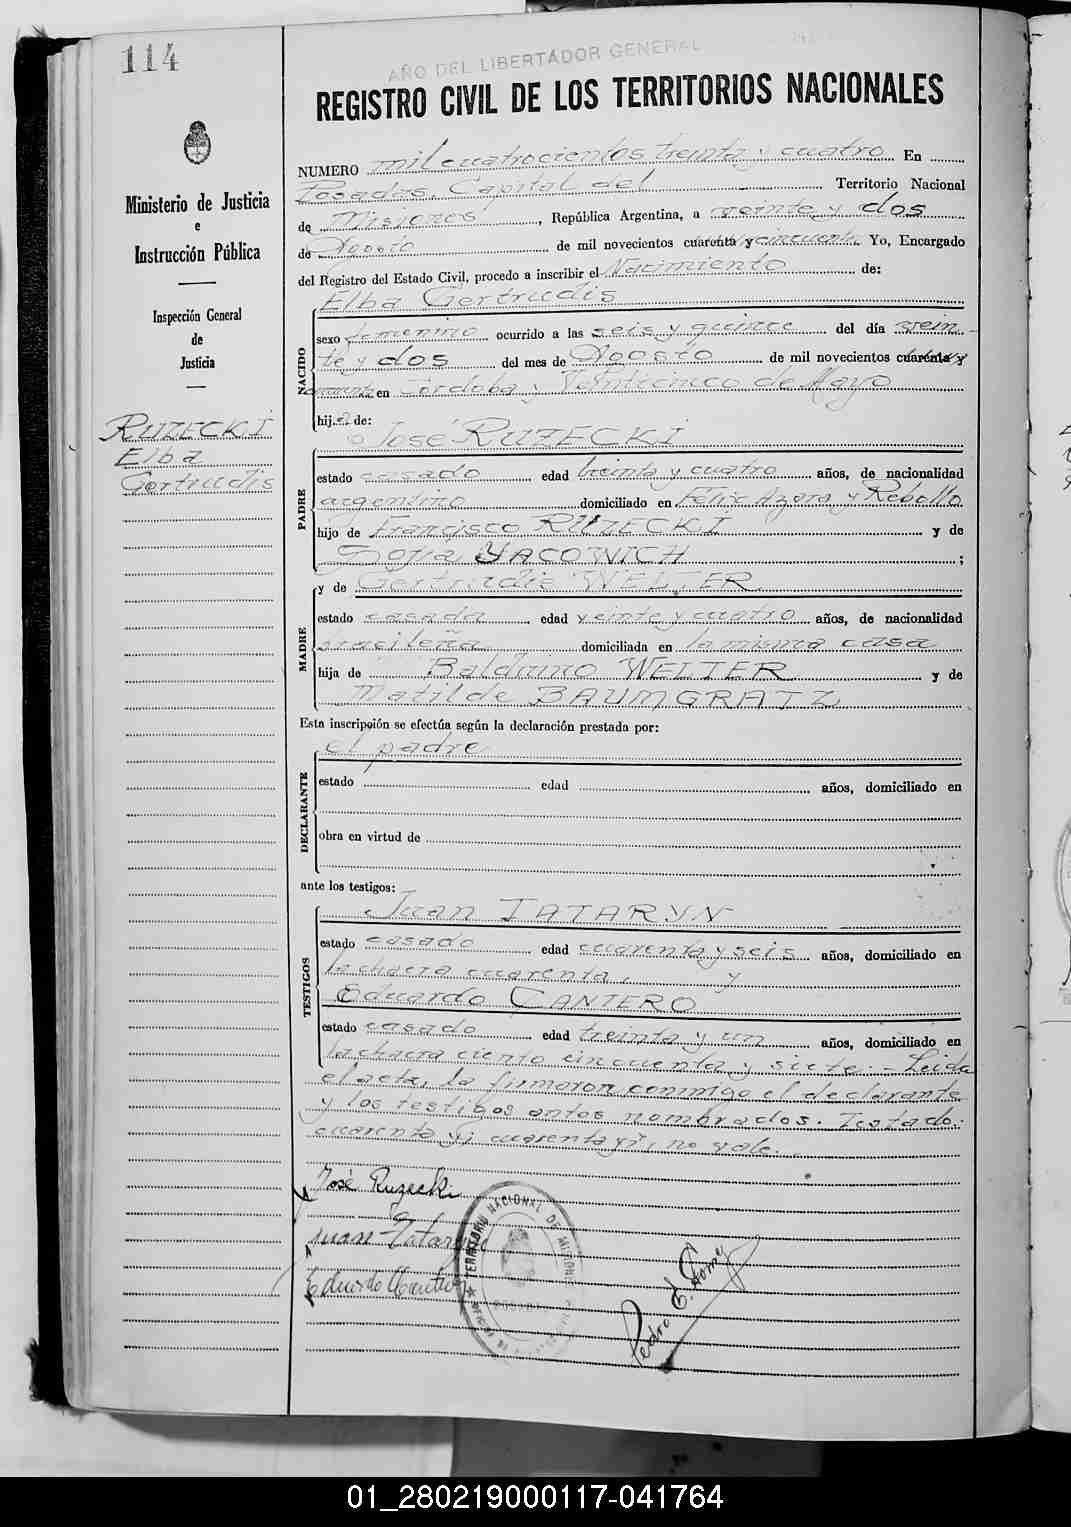 114
AÑO DEL LIBERTADOR GENERAL
REGISTRO CIVIL DE LOS TERRITORIOS NACIONALES
Ministerio de Justicia
e
Instrucción Pública
Inspección General
de
Justicia
RUZECKI
Elba
Gertrudis
NUMERO mil cuatrocientos treinta y cuatro En
Posadas, Capital del Territorio Nacional
de Misiones, República Argentina, a veinte y dos
de Agosto de mil novecientos cuarenta y cincuenta Yo, Encargado
del Registro del Estado Civil, procedo a inscribir el Nacimiento de:
Elba Gertrudis
NACIDO
sexo femenino ocurrido a las seis y quince del día vein-
te y dos del mes de Agosto de mil novecientos cuarenta y
cincuenta en Córdoba y Veinticinco de Mayo
hija de:
José RUZECKI
PADRE
estado casado edad treinta y cuatro años, de nacionalidad
argentino domiciliado en Félix Azara y Rebollo
hijo de Francisco RUZECKI y de
YACOWICH ;
y de Gertrudis WELTER
MADRE
estado casada edad veinte y cuatro años, de nacionalidad
brasileña domiciliada en la misma casa
hija de Balduino WELTER y de
Matilde BAUMGRATZ
Esta inscripción se efectúa según la declaración prestada por:
el padre
DECLARANTE
estado edad años, domiciliado en
obra en virtud de
ante los testigos:
Juan TATARYN
TESTIGOS
estado casado edad cuarenta y seis años, domiciliado en
la chacra cuarenta, y
Eduardo CANTERO
estado casado edad treinta y un años, domiciliado en
la chacra ciento cincuenta y siete.- Leida
el acta, la firmaron conmigo el declarante
y los testigos antes nombrados. Testado:
cuarenta y; cuarenta y; no vale.
José Ruzecki
Juan Tataryn
Eduardo Cantero
TERRITORIO NACIONAL DE MISIONES
Pedro E.
01_280219000117-041764